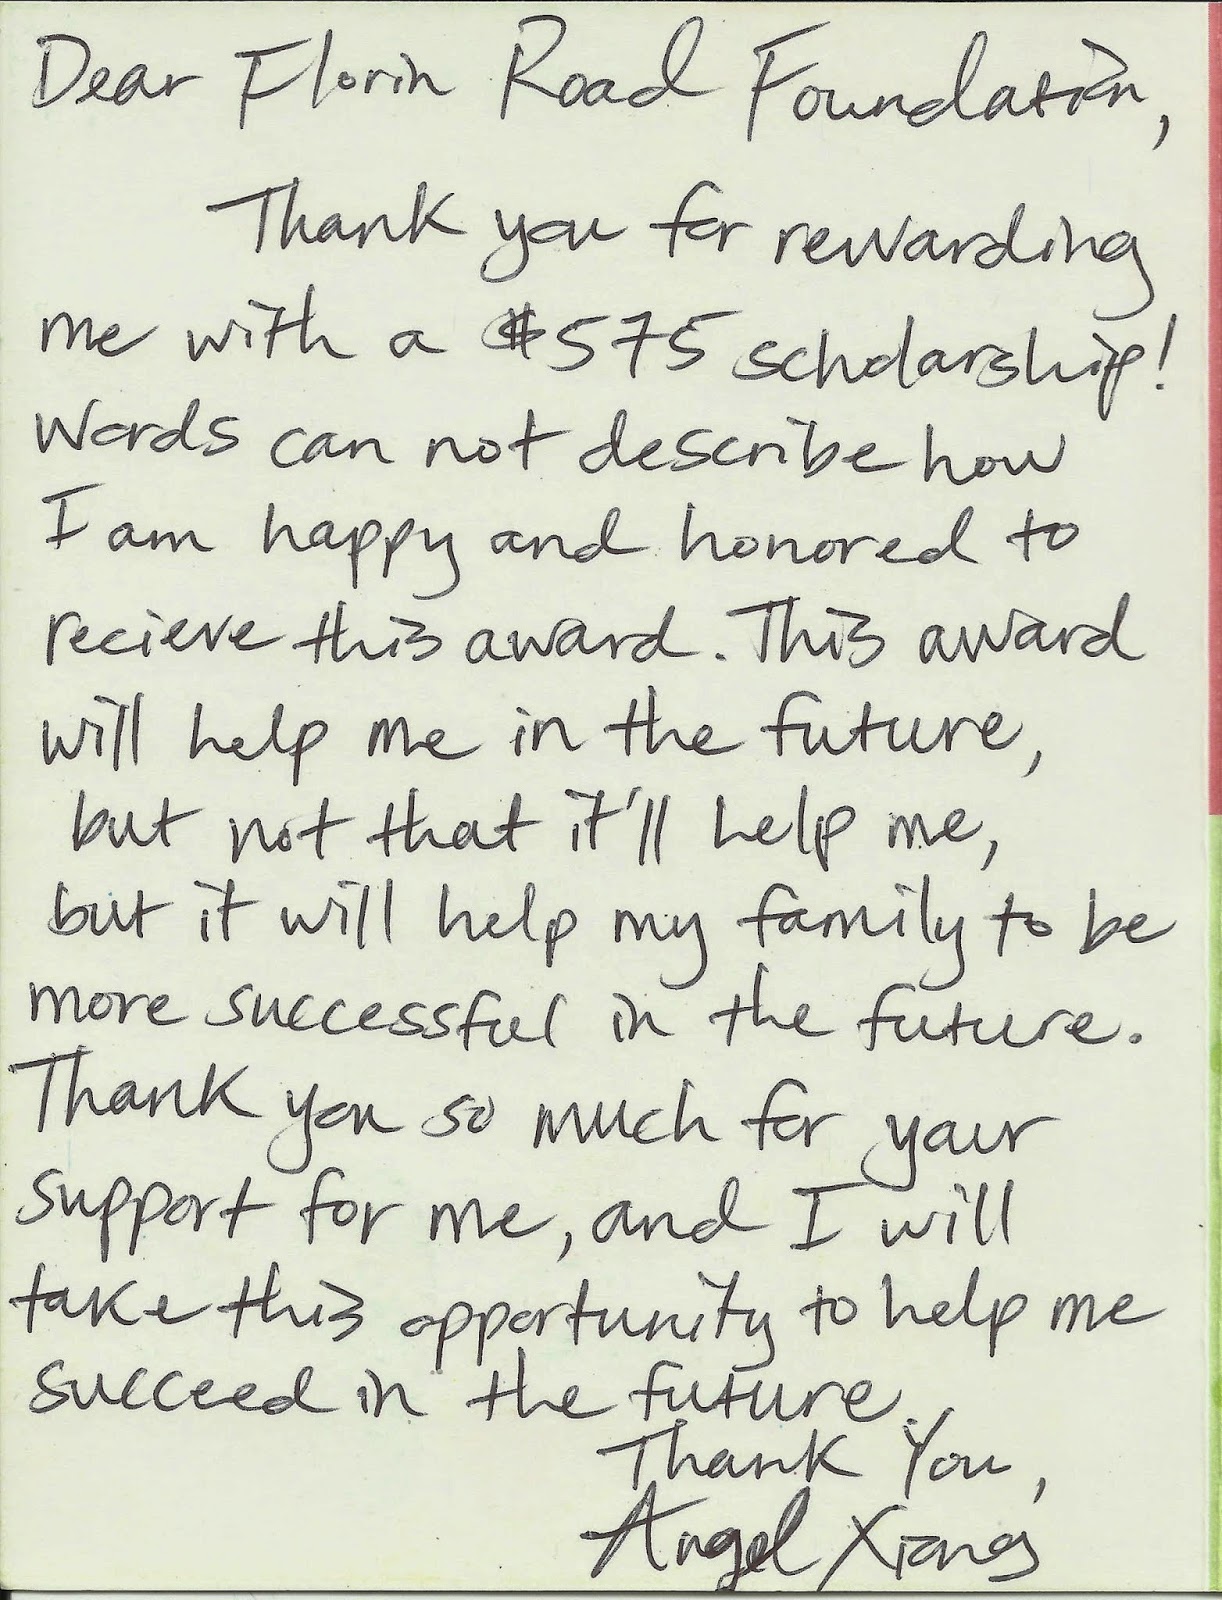 Dear Florin Road Foundation,
Thank you for rewarding
me with a $575 scholarship!
Words can not describe how
I am happy and honored to
recieve this award. This award
will help me in the future,
but not that it'll help me,
but it will help my family to be
more successful in the future.
Thank you so much for your
support for me, and I will
take this opportunity to help me
succeed in the future.
Thank You,
Angel Xiong